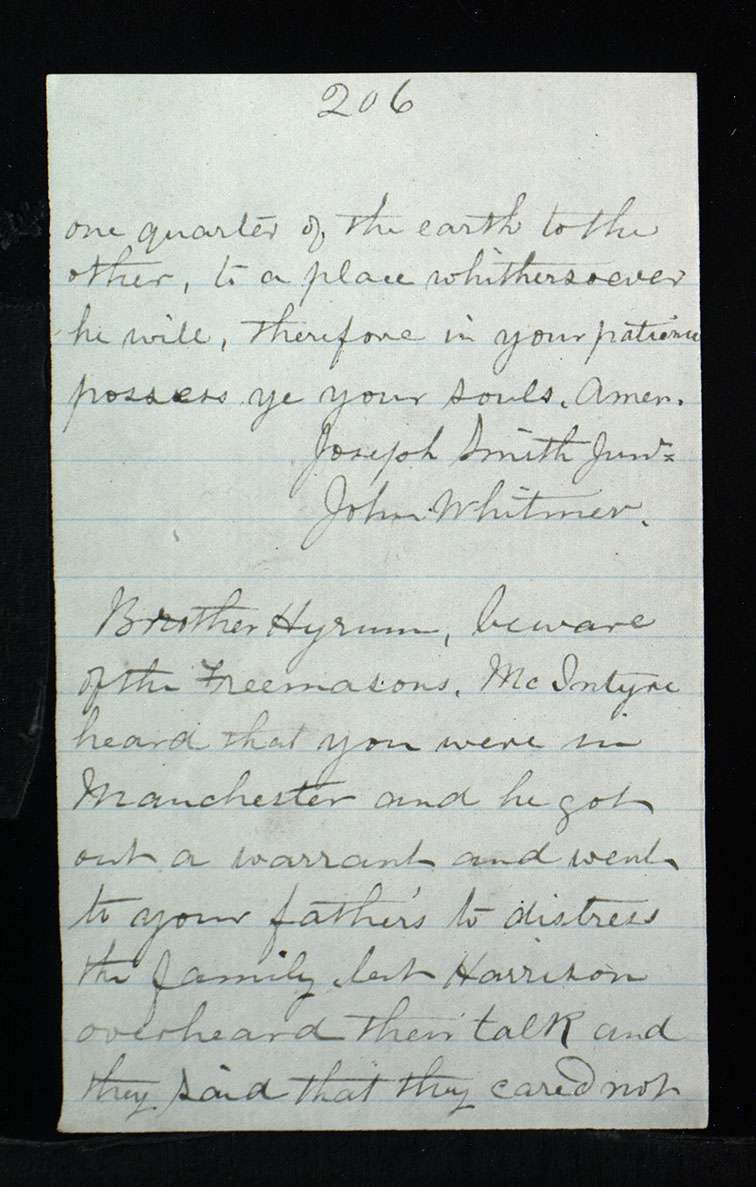 206
one quarter of the earth to the
other, to a place whithersoever
he will, therefore in your patience
possess ye your souls. Amen.
Joseph Smith Junr
John Whitmer.
Brother Hyrum, beware
of the Freemasons. McIntyre
heard that you were in
Manchester and he got
out a warrant and went
to your father's to distress
the family but Harrison
overheard their talk and
they said that they cared not